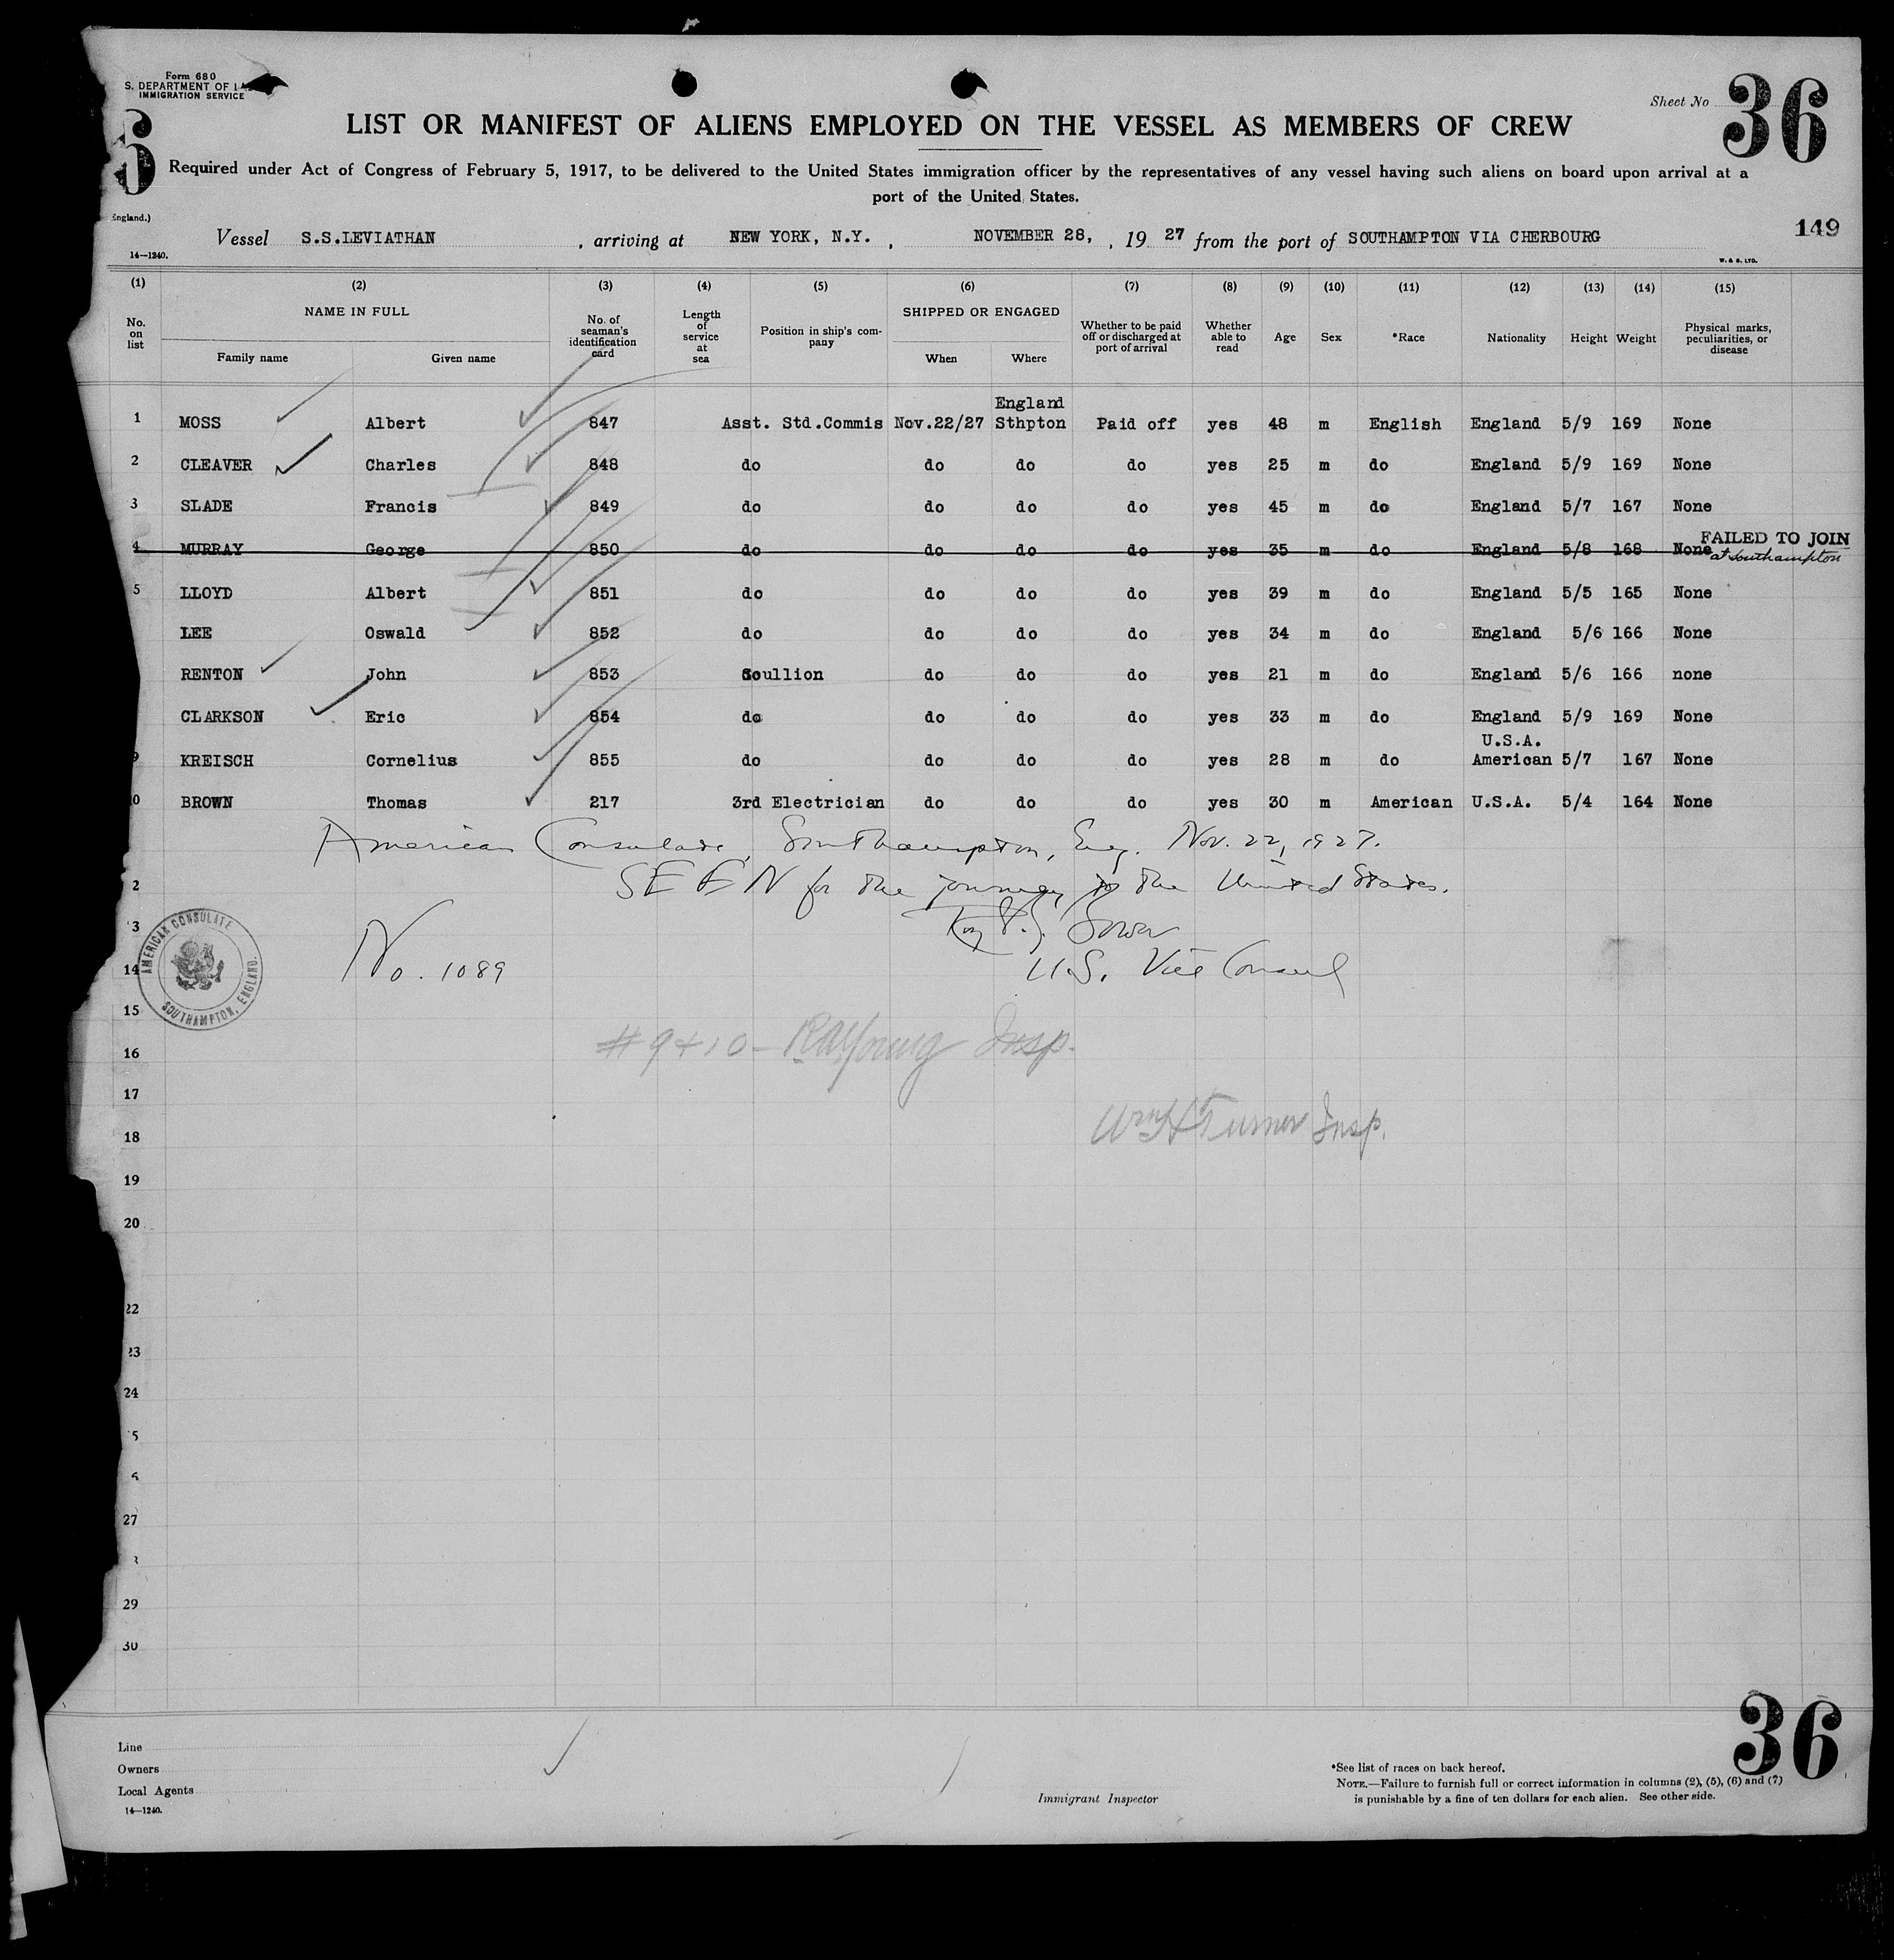 Form 680
S. DEPARTMENT OF
IMMIGRATION SERVICE
Sheet No 36
LIST OR MANIFEST OF ALIENS EMPLOYED ON THE VESSEL AS MEMBERS OF CREW
Required under Act of Congress of February 5, 1917, to be delivered to the United States immigration officer by the representatives of any vessel having such aliens on board upon arrival at a
port of the United States.
England.)
149
Vessel S.S.LEVIATHAN , arriving at NEW YORK, N.Y. , NOVEMBER 28, , 19 27 from the port of SOUTHAMPTON VIA CHERBOURG
14—1240.
W. & S. LTD.
(1) (2) (3) (4) (5) (6) (7) (8) (9) (10) (11) (12) (13) (14) (15)
No. on list NAME IN FULL Family name Given name No. of seaman's identification card Length of service at sea Position in ship's company SHIPPED OR ENGAGED When Where Whether to be paid off or discharged at port of arrival Whether able to read Age Sex *Race Nationality Height Weight Physical marks, peculiarities, or disease
England
1 MOSS Albert 847 Asst. Std.Commis Nov.22/27 Sthpton Paid off yes 48 m English England 5/9 169 None
2 CLEAVER Charles 848 do do do do yes 25 m do England 5/9 169 None
3 SLADE Francis 849 do do do do yes 45 m do England 5/7 167 None
4 MURRAY George 850 do do do do yes 35 m do England 5/8 168 None FAILED TO JOIN
at Southampton
5 LLOYD Albert 851 do do do do yes 39 m do England 5/5 165 None
LEE Oswald 852 do do do do yes 34 m do England 5/6 166 None
RENTON John 853 Scullion do do do yes 21 m do England 5/6 166 none
CLARKSON Eric 854 do do do do yes 33 m do England 5/9 169 None
U.S.A.
9 KREISCH Cornelius 855 do do do do yes 28 m do American 5/7 167 None
0 BROWN Thomas 217 3rd Electrician do do do yes 30 m American U.S.A. 5/4 164 None
American Consulate, Southampton, Eng. Nov. 22, 1927.
2 SEEN for the journey to the United States.
3
AMERICAN CONSULATE
SOUTHAMPTON, ENGLAND.
14 No. 1089 U.S. Vice Consul
15
16 #9+10- Young Insp.
17
18 Wm H Turner Insp.
19
20
22
23
24
5
27
29
30
36
Line
Owners
Local Agents
14—1240.
Immigrant Inspector
*See list of races on back hereof.
NOTE.—Failure to furnish full or correct information in columns (2), (5), (6) and (7)
is punishable by a fine of ten dollars for each alien. See other side.